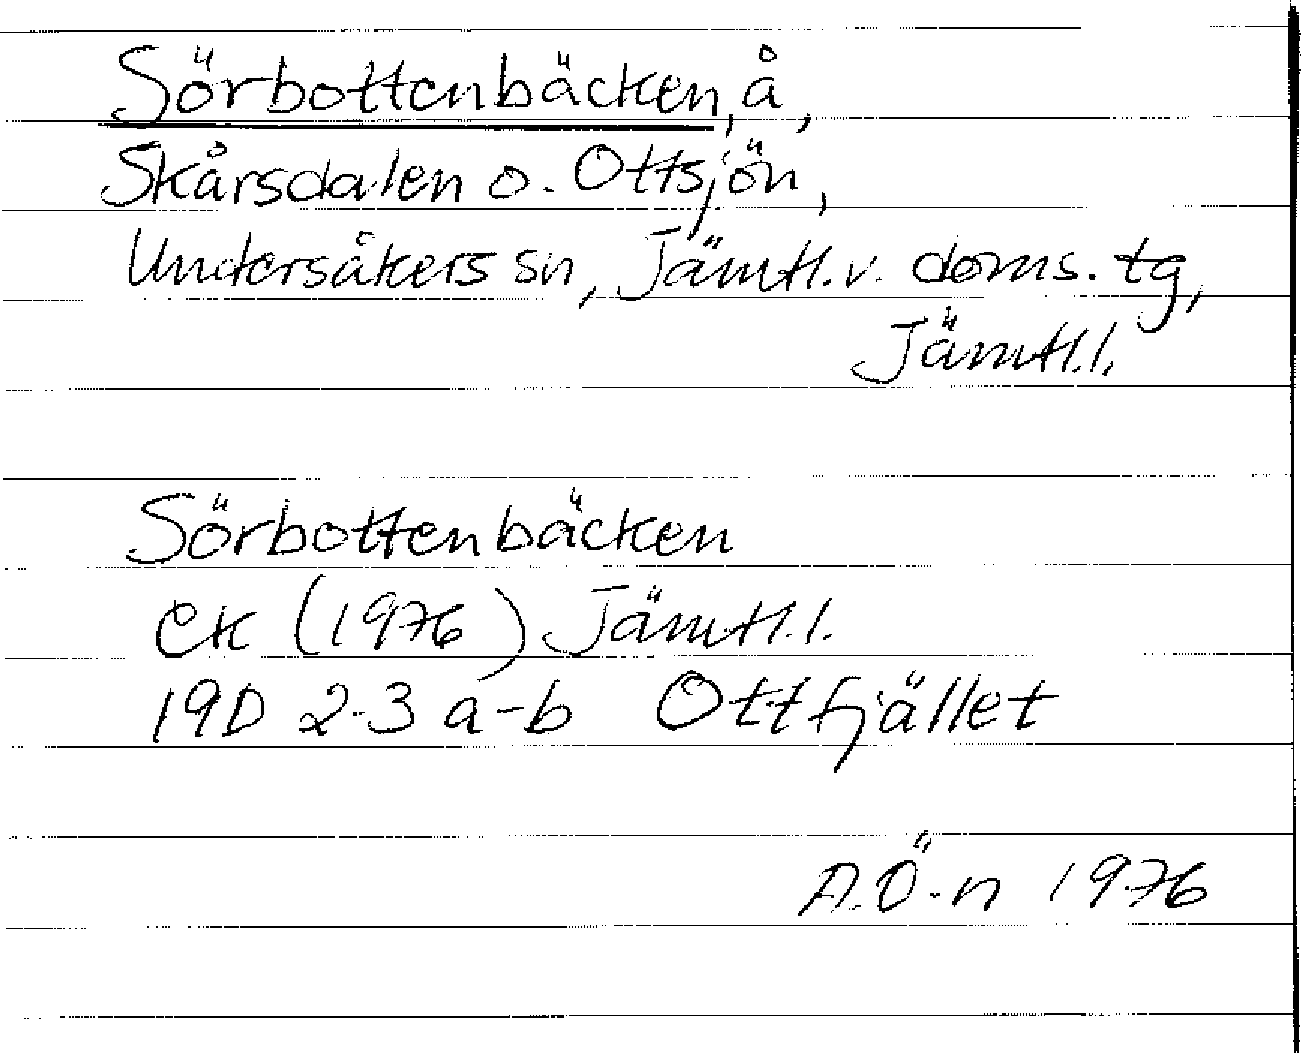 Sörbottenbäcken, å,
Skårsdalen o. Ottsjön,
Undersåkers sn, Jämtl. v. doms. tg,
Jämtl. l.
Sörbottenbäcken
ek (1976) Jämtl. l.
19D 2-3 a-b Ottfjället
A.Ö-n 1976